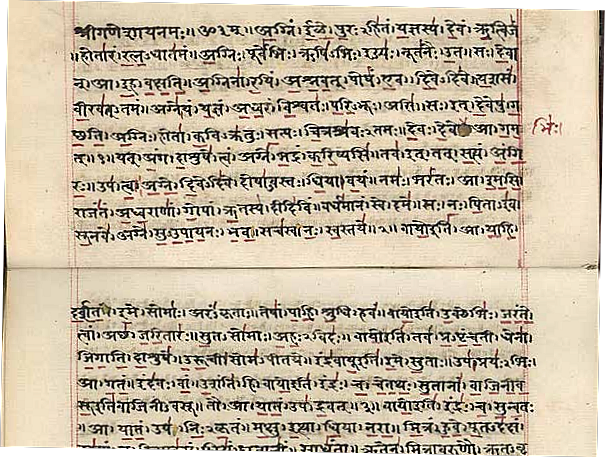 श्रीगणेशायनमः॥ॐ३म्॥ अग्निं। ईळे। पुरःऽहितं। यज्ञस्य। देवं। ऋत्विजं
।होतारं। रत्नऽधातमं॥ अग्निः। पूर्वेभिः। ऋषिऽभिः। ईड्यः। नूतनैः। उत। सः। देवा
न्। आ। इह। वक्षति॥ अग्निना। रयिं। अश्नवत्। पोषं। एव। दिवेऽदिवे॥ यशसं
वीरवत्ऽतमं॥ अग्ने। यं। यज्ञं। अध्वरं। विश्वतः। परिऽभूः। असि। सः। इत्। देवेषु। ग
च्छति॥ अग्निः। होता। कविऽक्रतुः। सत्यः। चित्रश्रवःऽतमः॥ देवः। देवे आ। गम
भिः।
त्॥१॥ यत्। अंग। दाशुषे। त्वं। अग्ने। भद्रं। करिष्यसि॥ तव। इत्। तत्। सत्यं। अंगि
रः॥ उप। त्वा। अग्ने। दिवेऽदिवे। दोषाऽवस्तः। धिया। वयं॥ नमः। भरंतः। आ। इमसि
राजंतं। अध्वराणां। गोपां। ऋतस्य। दीदिविं॥ वर्धमानं। स्वे। दमे॥ सः। नः। पिताऽइव
सूनवे। अग्ने। सुऽउपायनः। भव॥ सचस्व। नः। स्वस्तये॥२॥ वायो इति। आ। याहि।
दर्शत। इमे। सोमाः। अरंऽकृताः॥ तेषां। पाहि। श्रुधि। हवं॥ वायो इति। उक्थेभिः। जरंते
त्वां। अच्छ। जरितारः॥ सुतऽसोमाः। अहःऽविदः॥ वायो इति। तव। प्रऽपृंचती। धेना।
जिगाति। दाशुषे॥ उरूची। सोमऽपीतये॥ इंद्रवायू इति। इमे। सुताः॥ उप। प्रयःऽभिः।
आ। गतं॥ इंदवः। वां। उशंति। हि॥ वायो इति। इंद्रः। च। चेतथः। सुतानां। वाजिनीव
सू इति वाजिनीऽवसू॥ तौ। आ। यातं। उप। द्रवत्॥३॥ वायो इति। इंद्रः। च। सुन्वतः
॥आ। यातं। उप। निःऽकृतं॥ मक्षु। इत्था। धिया। नरा॥ मित्रं। हुवे। पूतऽदक्षं